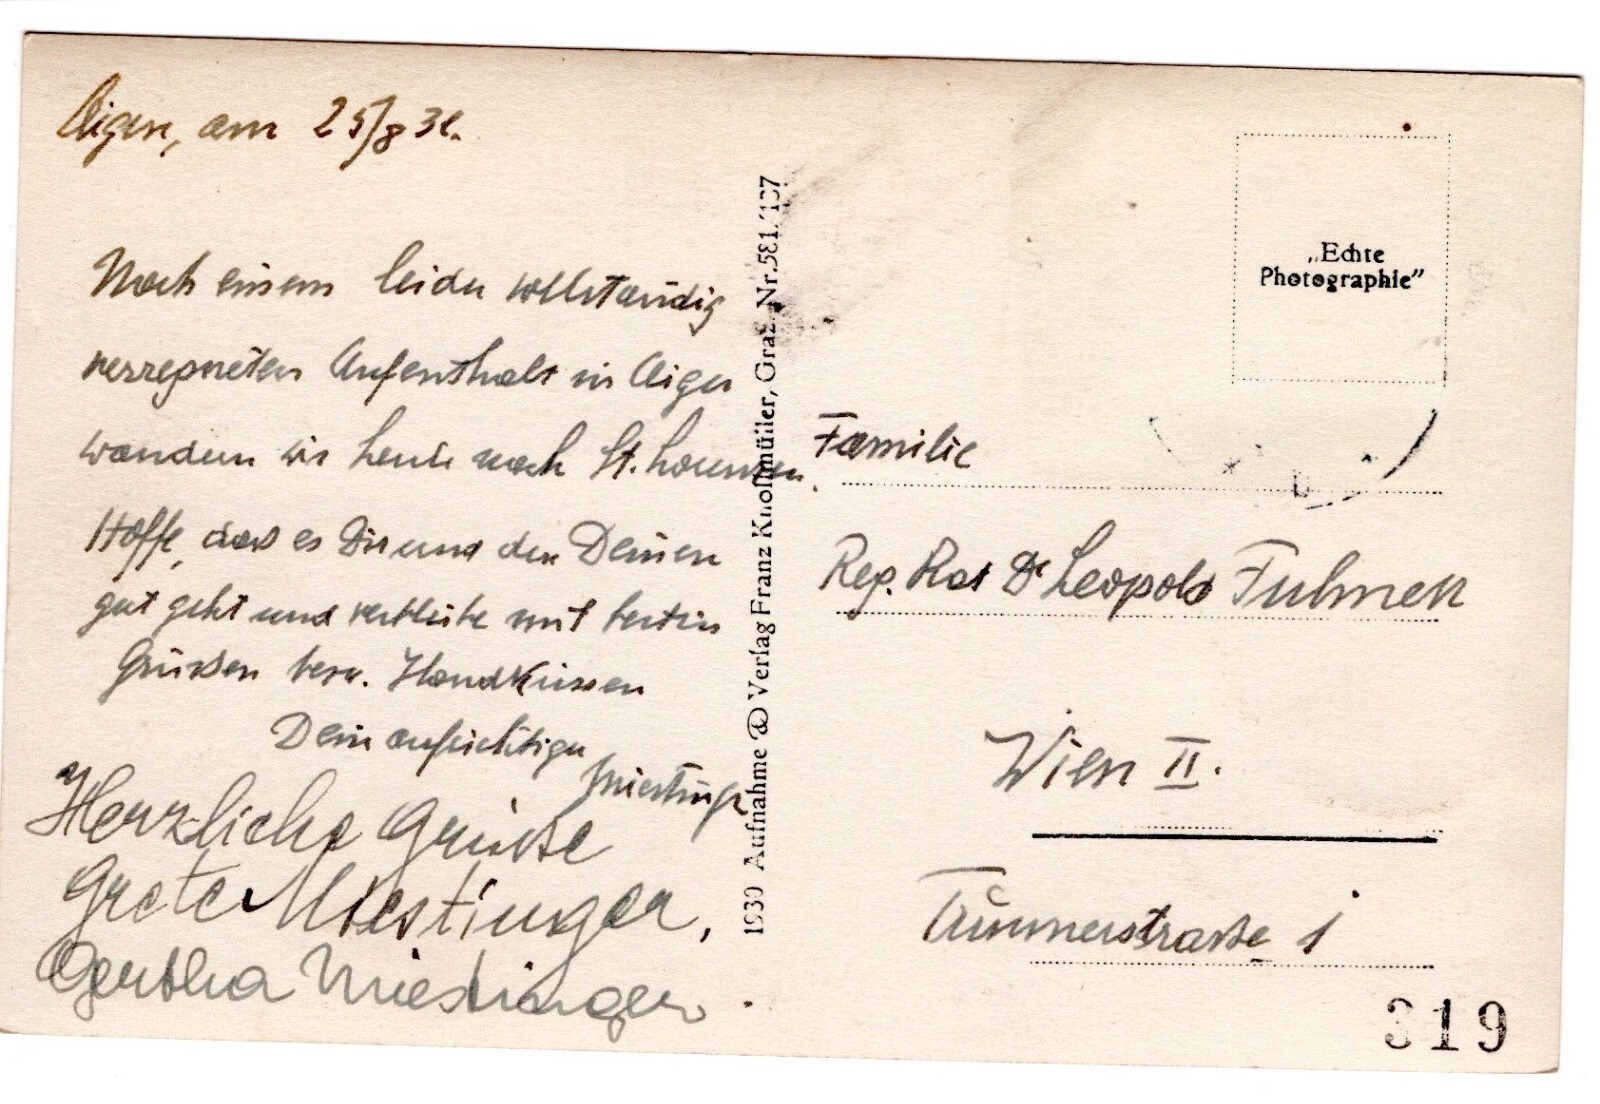 Aigen, am 25/8 31.
Nach einem leider vollständig
verregneten Aufenthalt in Aigen
wandern wir heute nach St. Lorenzen.
Hoffe, dass es Dir und den Deinen
gut geht und verbleibe mit besten
Grüßen bezw. Handküssen
Dein aufrichtiger
Miestinger
Herzliche Grüße
Grete Miestinger,
Bertha Miestinger
1930 Aufnahme Verlag Franz Knollmüller, Graz. Nr. 581/137
„Echte
Photographie"
Familie
Reg. Rat Dr Leopold Fulmek
Wien II.
Trunnerstraße 1
319